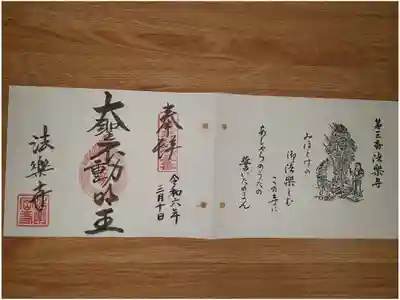 第三番法楽寺
みほとけの
御法楽しむ
この寺に
あしやらのうたの
誓いたのまん
奉拝
令和六年
三月十日
大聖不動明王
法樂寺